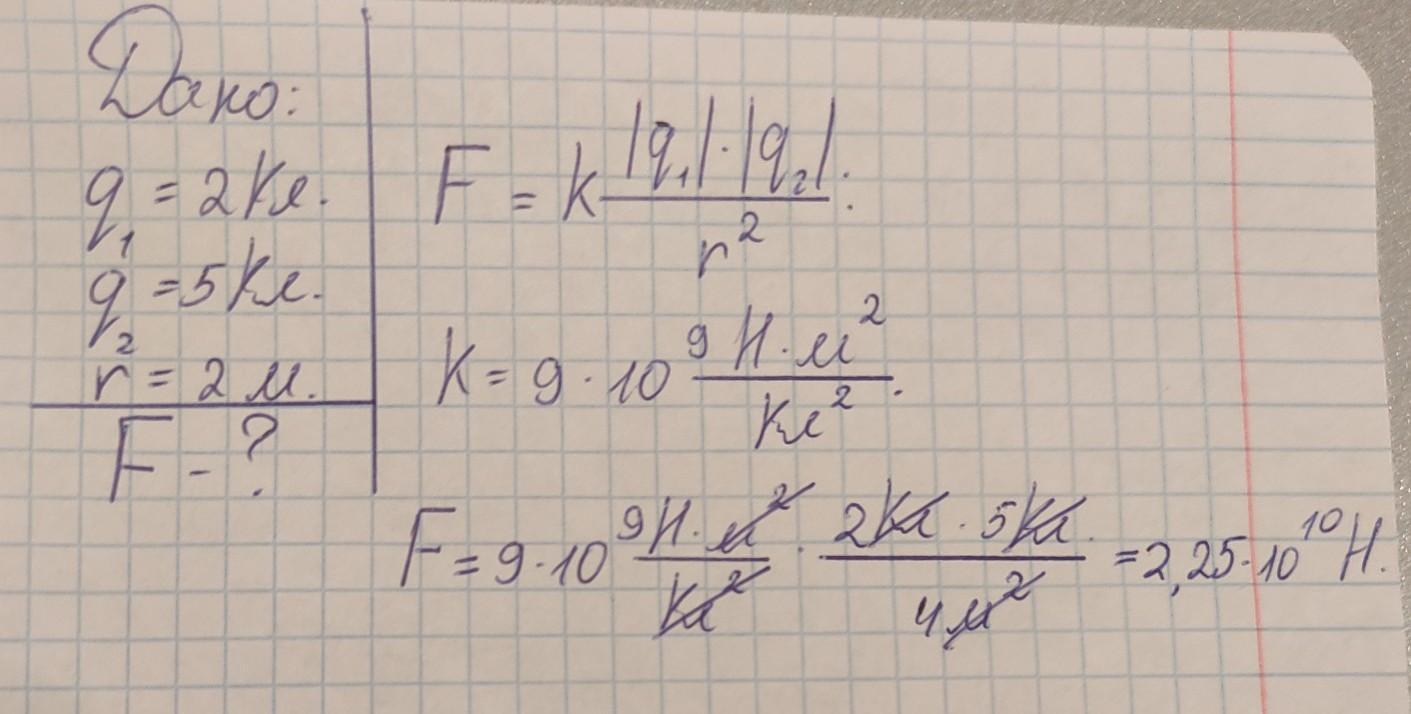 Дано:
q₁ = 2 Кл.
q₂ = 5 Кл.
r = 2 м.
F - ?
F = k |q₁| · |q₂| / r².
K = 9 · 10⁹ Н · м² / Кл².
F = 9 · 10⁹ Н · м² / Кл² · 2Кл · 5Кл. / 4м² = 2,25 · 10¹⁰ Н.